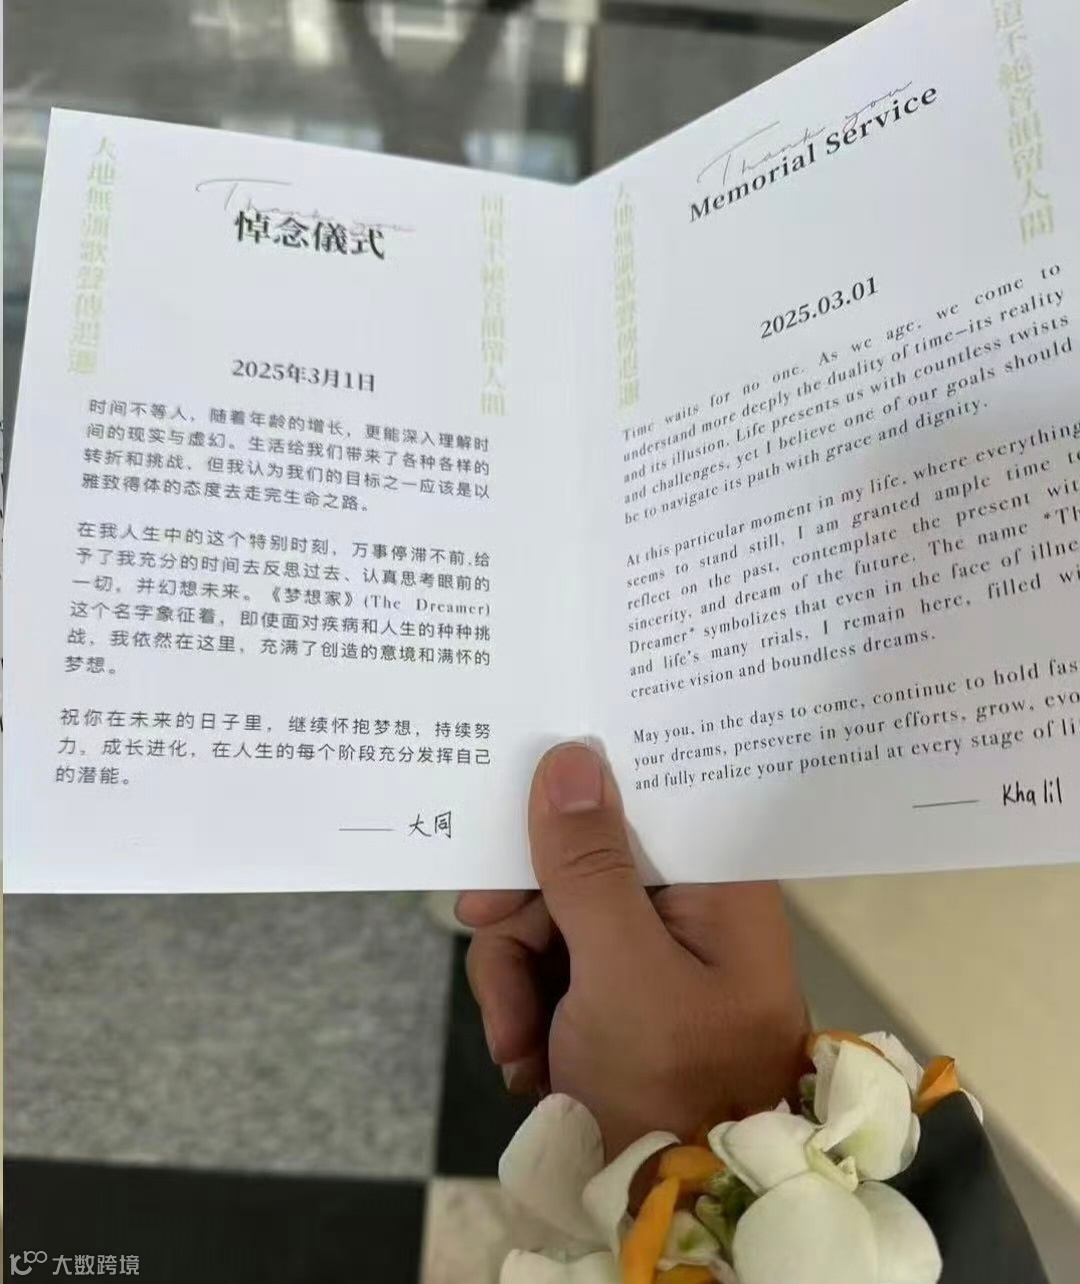 Thank you
悼念儀式
2025年3月1日
时间不等人，随着年龄的增长，更能深入理解时
间的现实与虚幻。生活给我们带来了各种各样的
转折和挑战，但我认为我们的目标之一应该是以
雅致得体的态度去走完生命之路。
在我人生中的这个特别时刻，万事停滞不前，给
予了我充分的时间去反思过去、认真思考眼前的
一切，并幻想未来。《梦想家》(The Dreamer)
这个名字象征着，即使面对疾病和人生的种种挑
战，我依然在这里，充满了创造的意境和满怀的
梦想。
祝你在未来的日子里，继续怀抱梦想，持续努
力，成长进化，在人生的每个阶段充分发挥自己
的潜能。
—— 大同
Thank you
Memorial Service
道不絶音韻留人間
2025.03.01
Time waits for no one. As we age, we come to
understand more deeply the duality of time—its reality
and its illusion. Life presents us with countless twists
and challenges, yet I believe one of our goals should
be to navigate its path with grace and dignity.
At this particular moment in my life, where everything
seems to stand still, I am granted ample time to
reflect on the past, contemplate the present wit
sincerity, and dream of the future. The name *Th
Dreamer* symbolizes that even in the face of illne
and life's many trials, I remain here, filled wi
creative vision and boundless dreams.
May you, in the days to come, continue to hold fas
your dreams, persevere in your efforts, grow, evo
and fully realize your potential at every stage of li
—— Khalil
大数跨境